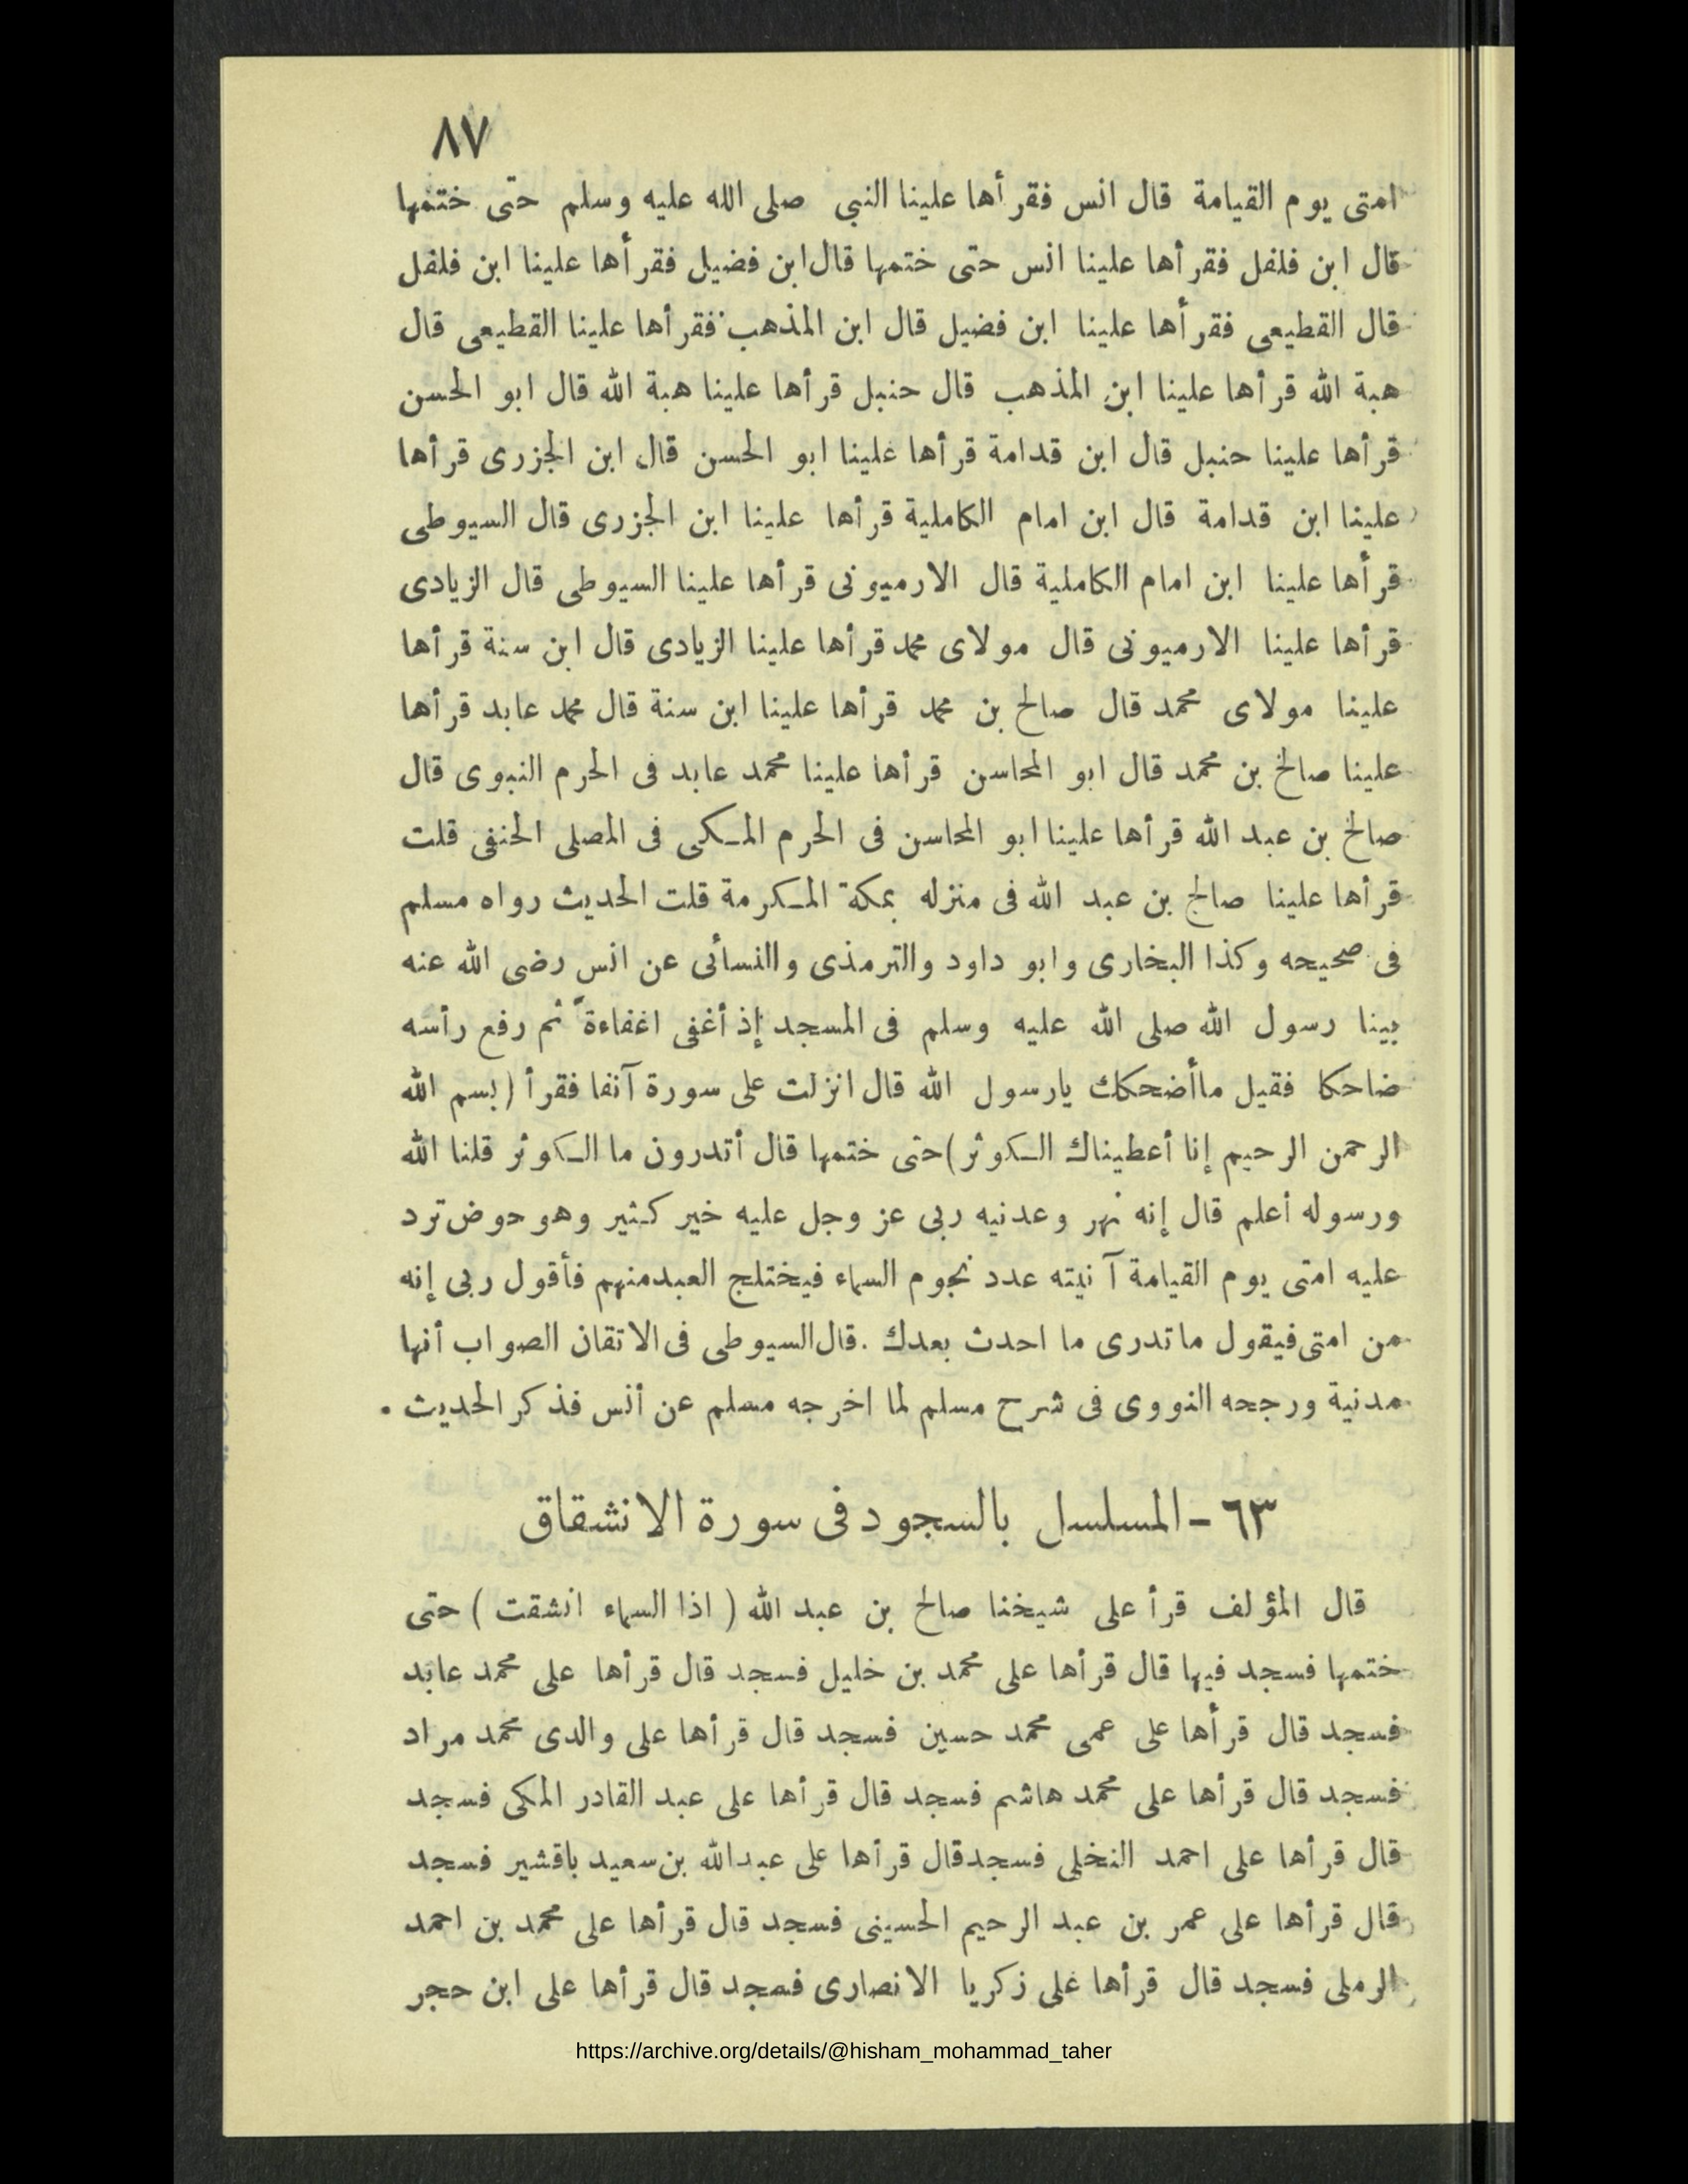 ٨٧
امتى يوم القيامة قال انس فقرأها علينا النبي صلى الله عليه وسلم حتى ختمها
قال ابن فلفل فقرأها علينا انس حتى ختمها قال ابن فضيل فقرأها علينا ابن فلفل
قال القطيعى فقرأها علينا ابن فضيل قال ابن المذهب فقرأها علينا القطيعى قال
هبة الله قرأها علينا ابن المذهب قال حنبل قرأها علينا هبة الله قال ابو الحسن
قرأها علينا حنبل قال ابن قدامة قرأها علينا ابو الحسن قال ابن الجزرى قرأها
علينا ابن قدامة قال ابن امام الكاملية قرأها علينا ابن الجزرى قال السيوطى
قرأها علينا ابن امام الكاملية قال الارميونى قرأها علينا السيوطى قال الزيادى
قرأها علينا الارميونى قال مولاى محمد قرأها علينا الزيادى قال ابن سنة قرأها
علينا مولاى محمد قال صالح بن محمد قرأها علينا ابن سنة قال محمد عابد قرأها
علينا صالح بن محمد قال ابو المحاسن قرأها علينا محمد عابد فى الحرم النبوى قال
صالح بن عبد الله قرأها علينا ابو المحاسن فى الحرم المكى فى المصلى الحنفى قلت
قرأها علينا صالح بن عبد الله فى منزله بمكة المكرمة قلت الحديث رواه مسلم
فى صحيحه وكذا البخارى وابو داود والترمذى والنسائى عن انس رضى الله عنه
بينا رسول الله صلى الله عليه وسلم فى المسجد إذ أغفى اغفاءةً ثم رفع رأسه
ضاحكا فقيل ماأضحكك يارسول الله قال انزلت على سورة آنفا فقرأ (بسم الله
الرحمن الرحيم إنا أعطيناك الكوثر) حتى ختمها قال أتدرون ما الكوثر قلنا الله
ورسوله أعلم قال إنه نهر وعدنيه ربى عز وجل عليه خير كثير وهو حوض ترد
عليه امتى يوم القيامة آنيته عدد نجوم السماء فيختلج العبد منهم فأقول ربى إنه
من امتى فيقول ماتدرى ما احدث بعدك . قال السيوطى فى الاتقان الصواب أنها
مدنية ورجحه النووى فى شرح مسلم لما اخرجه مسلم عن أنس فذكر الحديث .
٦٣ - المسلسل بالسجود فى سورة الانشقاق
قال المؤلف قرأ على شيخنا صالح بن عبد الله ( اذا السماء انشقت ) حتى
ختمها فسجد فيها قال قرأها على محمد بن خليل فسجد قال قرأها على محمد عابد
فسجد قال قرأها على عمى محمد حسين فسجد قال قرأها على والدى محمد مراد
فسجد قال قرأها على محمد هاشم فسجد قال قرأها على عبد القادر المكى فسجد
قال قرأها على احمد النخلى فسجد قال قرأها على عبدالله بن سعيد باقشير فسجد
قال قرأها على عمر بن عبد الرحيم الحسينى فسجد قال قرأها على محمد بن احمد
الرملى فسجد قال قرأها على زكريا الانصارى فسجد قال قرأها على ابن حجر
https://archive.org/details/@hisham_mohammad_taher